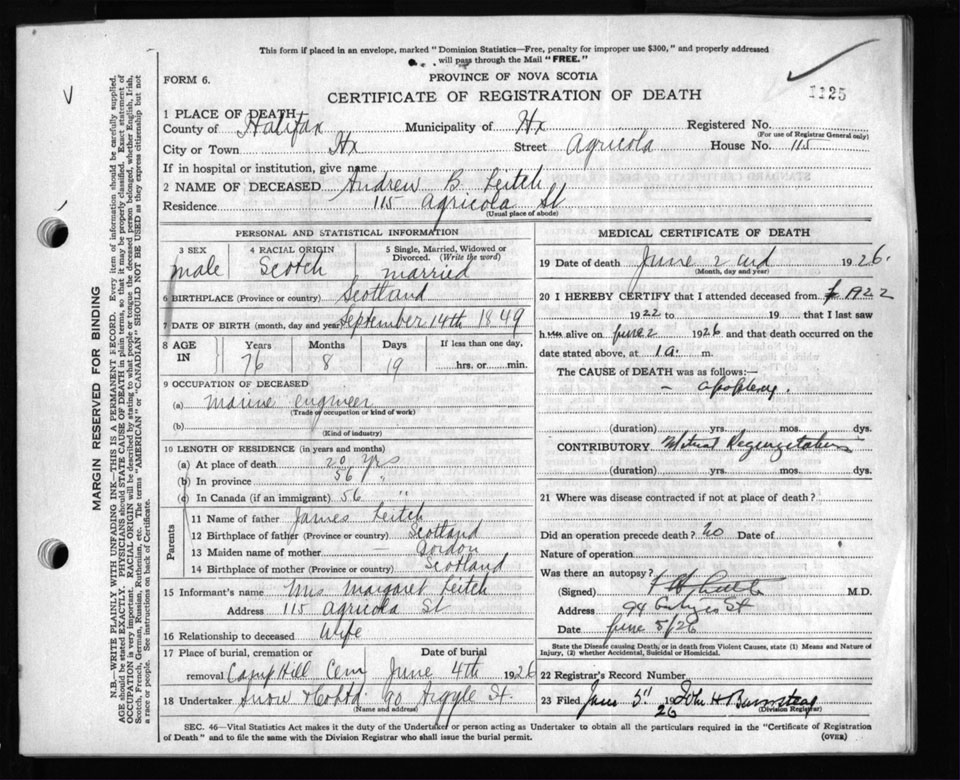 This form if placed in an envelope, marked "Dominion Statistics—Free, penalty for improper use $300," and properly addressed
will pass through the Mail "FREE."
FORM 6.
PROVINCE OF NOVA SCOTIA
CERTIFICATE OF REGISTRATION OF DEATH
1125
1 PLACE OF DEATH
County of Halifax Municipality of Hx Registered No.
(For use of Registrar General only)
City or Town Hx Street Agricola House No. 115
If in hospital or institution, give name
2 NAME OF DECEASED Andrew B. Leitch
Residence 115 Agricola St
(Usual place of abode)
PERSONAL AND STATISTICAL INFORMATION
3 SEX male
4 RACIAL ORIGIN Scotch
5 Single, Married, Widowed or Divorced. (Write the word) married
6 BIRTHPLACE (Province or country) Scotland
7 DATE OF BIRTH (month, day and year) September 14th 1849
8 AGE IN Years 76 Months 8 Days 19 If less than one day, hrs. or min.
9 OCCUPATION OF DECEASED
(a) Marine engineer
(Trade or occupation or kind of work)
(b)
(Kind of industry)
10 LENGTH OF RESIDENCE (in years and months)
(a) At place of death 20 yrs
(b) In province 56 "
(c) In Canada (if an immigrant) 56 "
Parents
11 Name of father James Leitch
12 Birthplace of father (Province or country) Scotland
13 Maiden name of mother — Gordon
14 Birthplace of mother (Province or country) Scotland
15 Informant's name Mrs Margaret Leitch
Address 115 Agricola St
16 Relationship to deceased Wife
17 Place of burial, cremation or removal Camp Hill Cem Date of burial June 4th 1926
18 Undertaker Snow & Co Ltd. 90 Argyle St.
(Name and address)
MEDICAL CERTIFICATE OF DEATH
19 Date of death June 2nd 1926.
(Month, day and year)
20 I HEREBY CERTIFY that I attended deceased from 1922
1922 to 19 that I last saw
h alive on June 2 1926 and that death occurred on
date stated above, at 1 a. m.
The CAUSE of DEATH was as follows:—
— apoplexy.
(duration) yrs. mos. dys.
CONTRIBUTORY Mitral Regurgitation
(duration) yrs. mos. dys.
21 Where was disease contracted if not at place of death?
Did an operation precede death? No Date of
Nature of operation
Was there an autopsy?
(Signed) M.D.
Address 94 St
Date June 5/26
State the Disease causing Death, or in death from Violent Causes, state (1) Means and Nature of
Injury, (2) whether Accidental, Suicidal or Homicidal.
22 Registrar's Record Number
23 Filed June 5" 1926 John H
(Division Registrar)
SEC. 46—Vital Statistics Act makes it the duty of the Undertaker or person acting as Undertaker to obtain all the particulars required in the "Certificate of Registration
of Death" and to file the same with the Division Registrar who shall issue the burial permit. (OVER)
MARGIN RESERVED FOR BINDING
N.B.—WRITE PLAINLY WITH UNFADING INK—THIS IS A PERMANENT RECORD. Every item of information should be carefully supplied.
AGE should be stated EXACTLY. PHYSICIANS should STATE CAUSE OF DEATH in plain terms, so that it may be properly classified. Exact statement of
OCCUPATION is very important. RACIAL ORIGIN will be described by stating to what people or tongue the deceased person belonged, whether English, Irish,
Scotch, French, German, Russian, Ruthenian, etc. The terms "AMERICAN" or "CANADIAN" SHOULD NOT BE USED as they express citizenship but not
a race or people. See instructions on back of Certificate.